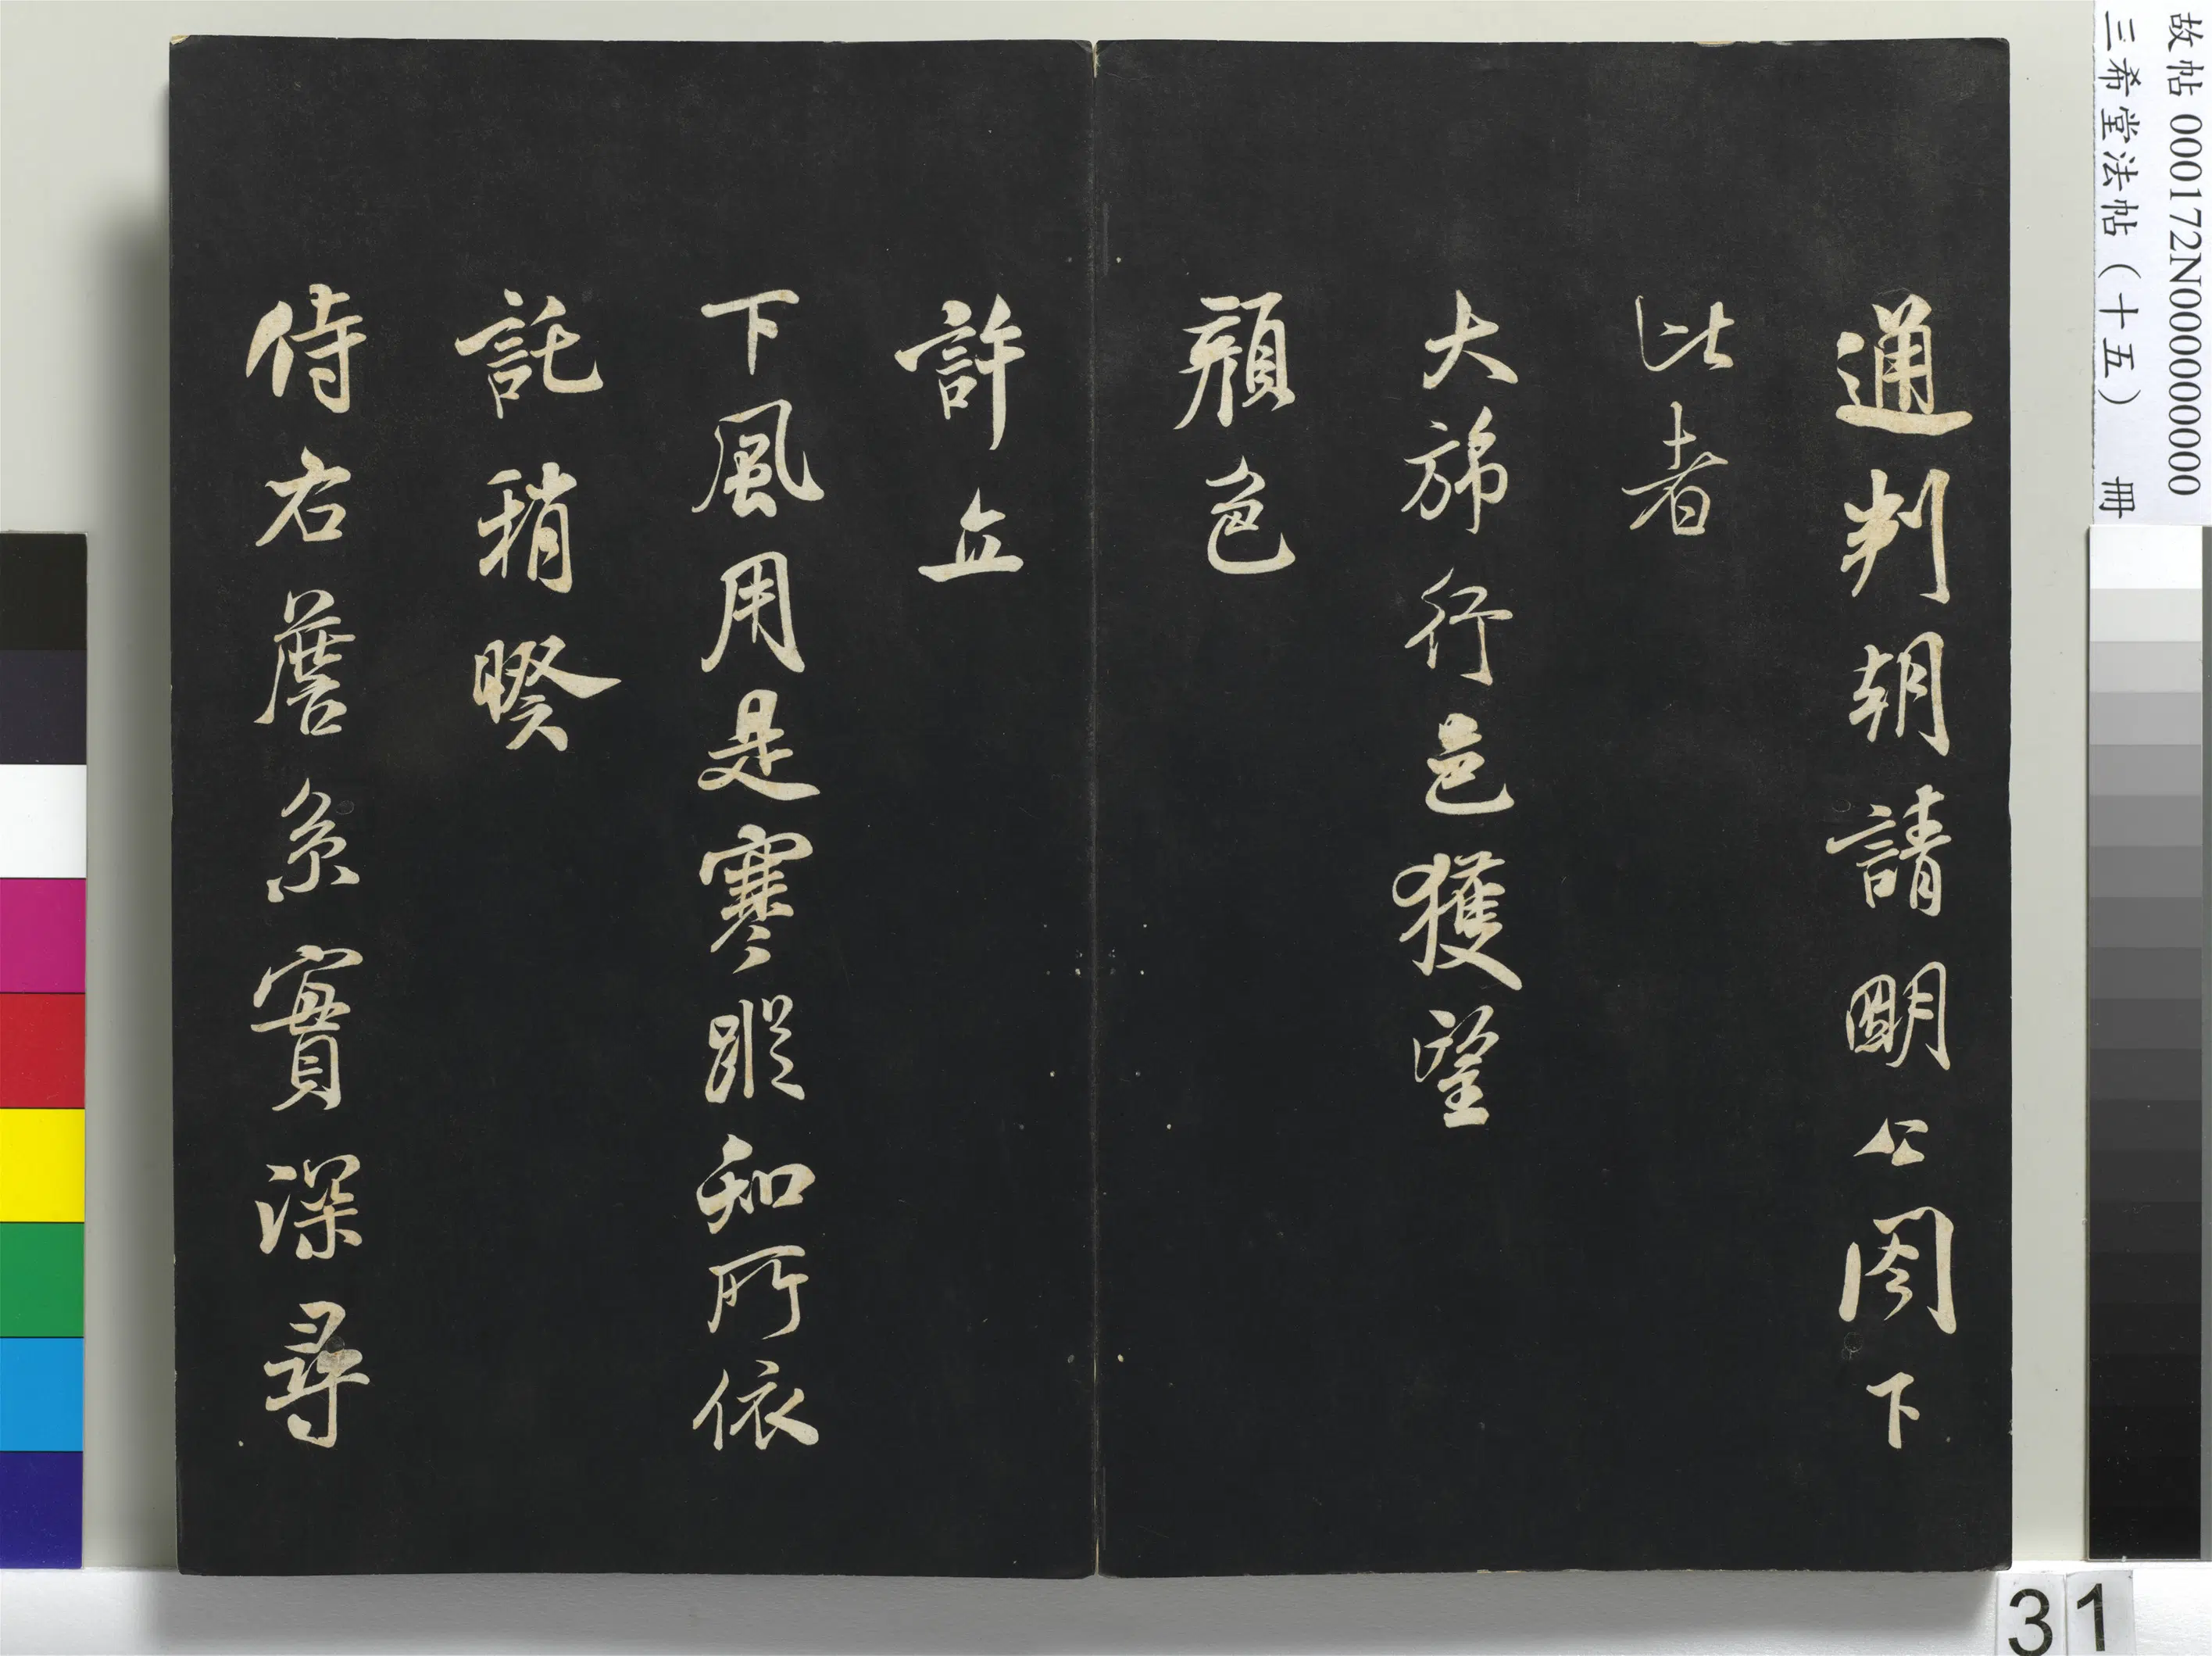 故帖 000172N000000000
三希堂法帖（十五） 冊
通判朝請明公閤下
比者
大旆行邑獲望
顏色
許立
下風用是寒蹤知所依
託稍暌
侍右詹系實深尋
31